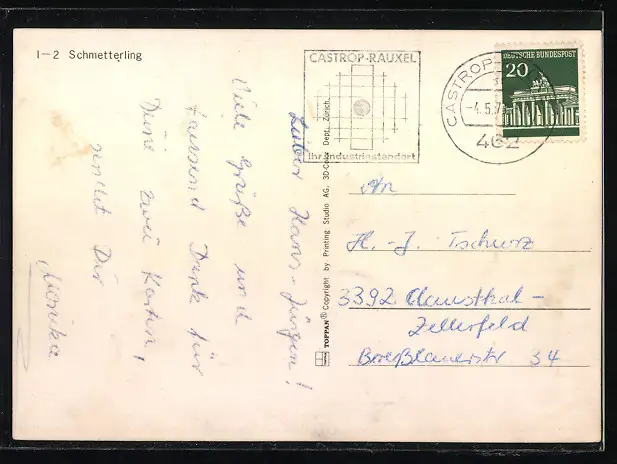 1-2 Schmetterling
Lieber Hans-Jürgen!
Viele Grüße und
tausend Dank für
Deine zwei Karten,
sendet Dir
Monika
CASTROP-RAUXEL
Ihr Industriestandort
CASTROP
-4.5.7
462
DEUTSCHE BUNDESPOST
20
TOPPAN © Copyright by Printing Studio AG. 3D-Color Dept. Zürich.
An
H.-J. Tschurz
3392 Clausthal-
Zellerfeld
Breßlauerstr 34